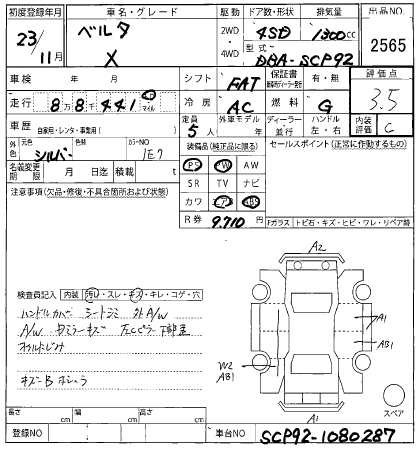 初度登録年月 車名・グレード 駆動 ドア数・形状 排気量 出品NO.
23/11月 ベルタ X 2WD 4WD 4SD 1300cc 2565
型式 DBA-SCP92
車検 年 月 シフト FAT 保証書 有・無 評価点 3.5
走行 8万8千441 km マイル 冷房 AC 燃料 G
車歴 自家用・レンタ・事業用( ) 定員 5人 外車モデル 年 ディーラー 並行 ハンドル 左・右 内装評価 C
外色 元色 シルバー 色替 カラーNO 1E7 装備品(純正品に限る) セールスポイント(正常に作動するもの)
名義変更期限 月 日迄 積載 t PS PW AW
注意事項(欠品・修復・不具合箇所および状態) SR TV ナビ
カワ エアB ABS
R券 9,710円 Fガラス トビ石・キズ・ヒビ・ワレ・リペア跡
A2
検査員記入 内装 汚れ・スレ・キズ・キレ・コゲ・穴
ハンドルカバー シートシミ 外A/W
A/W
A1
AB1
W2
AB1
キズーB
スペア
長さ cm 幅 cm 高さ cm A1
登録NO 車台NO SCP92-1080287